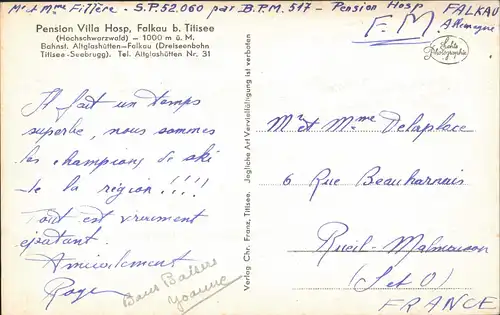 Mr et Mme Fillère - S.P. 52.060 par B.P.M. 517 - Pension Hosp
FALKAU
Allemagne
F.M.
Pension Villa Hosp, Falkau b. Titisee
(Hochschwarzwald) – 1000 m ü. M.
Bahnst. Altglashütten-Falkau (Dreiseenbahn
Titisee-Seebrugg). Tel. Altglashütten Nr. 31
Il fait un temps
superbe, nous sommes
les champions de ski
de la région !!!!
Tout est vraiment
épatant.
Amicalement
Roger
Bons Baisers
Yoanne
Verlag Chr. Franz, Titisee. Jegliche Art Vervielfältigung ist verboten
Echte
Photographie
Mr et Mme Delaplace
6 Rue Beauharnais
Rueil-Malmaison
(S et O)
FRANCE